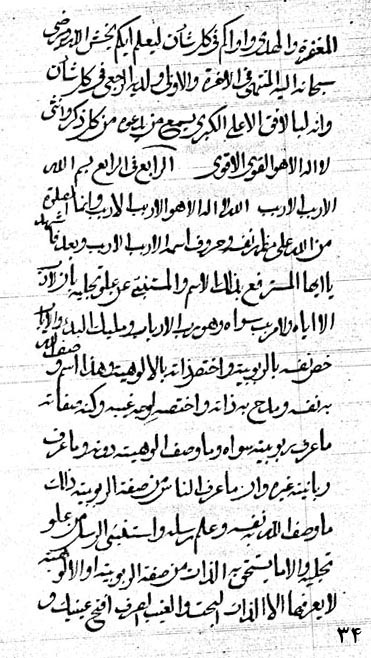 المغفرة والهدى واراكم فى كل شأن ليعلم ايكم يخش الله ربه ورضى
سبحانه اليه المنتهى فى الاخرة والاولى ولديه الرجعى فى كل شأن
وانه لبالافق الاعلى الكبرى يسمع من يدعوه من كل ذكر وانثى
لا اله الا هو القوى الاقوى الرابع فى الرابع بسم الله
الارب الارب الله لا اله الا هو الارب الارب وانما
من الله على مظهر نفسه وحروف اسمه الارب الارب وبعد
يا ايها المسترفع بذلك الاسم والمستنبئ عن علو تجليه بان لا
الا اياه ولا رب سواه وهو رب الارباب ومليك
خص نفسه بالربوبية واختص ذاته بالالوهية وهذا
به نفسه ومدح به ذاته واختصه لوحيد غيبه وكنه صفاته
ما عرف بربوبيته سواه وما وصف بالوهيته دونه وما عرف
ربانيته غيره وان ما عرف الناس من صفة الربوبية ذلك
ما وصف الله به نفسه وعلم رسله واستغنى الرسل من علو
تجليه والا ما يستحق به الذات من صفة الربوبية او الالوهية
لا يعرفها الا الذات البحت والغيب الصرف افتح عينيك و
٣۴